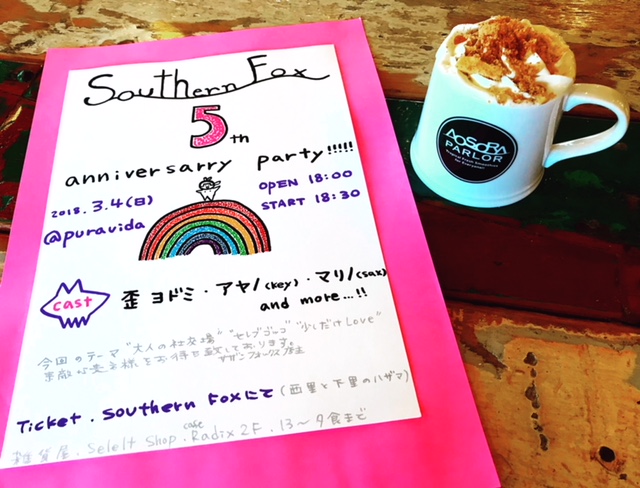 Southern Fox
5th
anniversarry party!!!!!
2018.3.4(日) OPEN 18:00
@puravida START 18:30
cast 歪ヨドミ・アヤノ(key)・マリノ(sax)
and more...!!
今回のテーマ"大人の社交場""セレブゴッコ""少しだけLove"
素敵な
お待ち致しております。
サザンフォックス
Ticket.Southern Foxにて(西里と下里のハザマ)
雑貨屋.Selelt Shop.cafe Radix 2F.13〜夕食まで
AOSORA
PARLOR